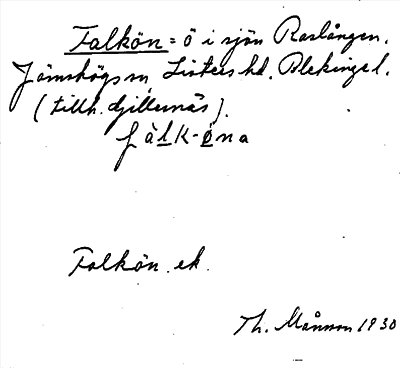 Falkön = ö i sjön Raslången.
Jämshögs sn Listers hd. Blekinge l.
(tillh. Gillesnäs).
fàlk-øna
Falkön. ek.
Th. Månsson 1930